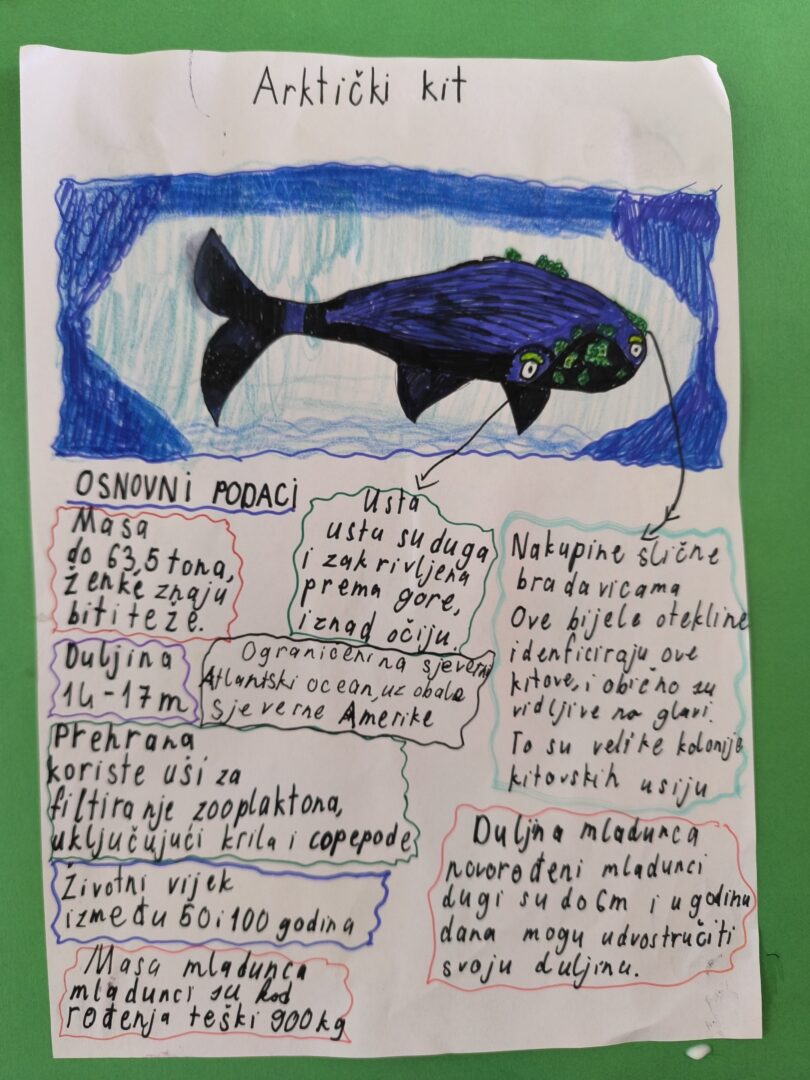 Arktički kit
OSNOVNI PODACI
Masa
do 63,5 tona,
ženke znaju
biti teže.
Usta
usta su duga
i zakrivljena
prema gore,
iznad očiju.
Nakupine slične
bradavicama
Ove bijele otekline
idenficiraju ove
kitove, i obično su
vidljive na glavi.
To su velike kolonije
kitovskih usiju
Duljina
14-17m
Ograničeni na sjeverni
Atlantski ocean, uz obale
sjeverne Amerike
Prehrana
koriste uši za
filtiranje zooplaktona,
uključujući krila i copepode
Životni vijek
između 50 i 100 godina
Masa mladunca
mladunci su kod
rođenja teški 900kg
Duljina mladunca
novorođeni mladunci
dugi su do 6m i u godinu
dana mogu udvostručiti
svoju duljinu.